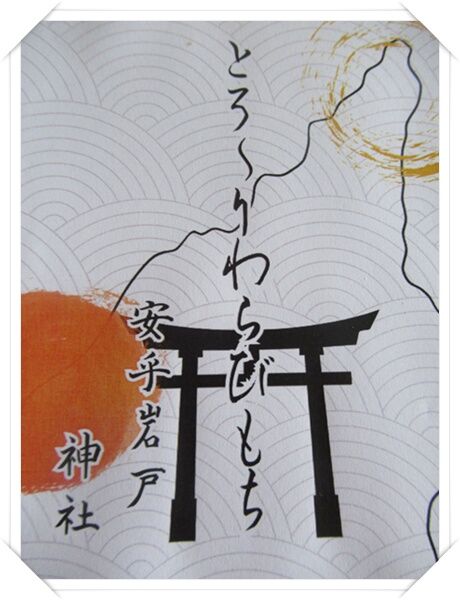 とろ〜りわらびもち
安乎岩戸
神社